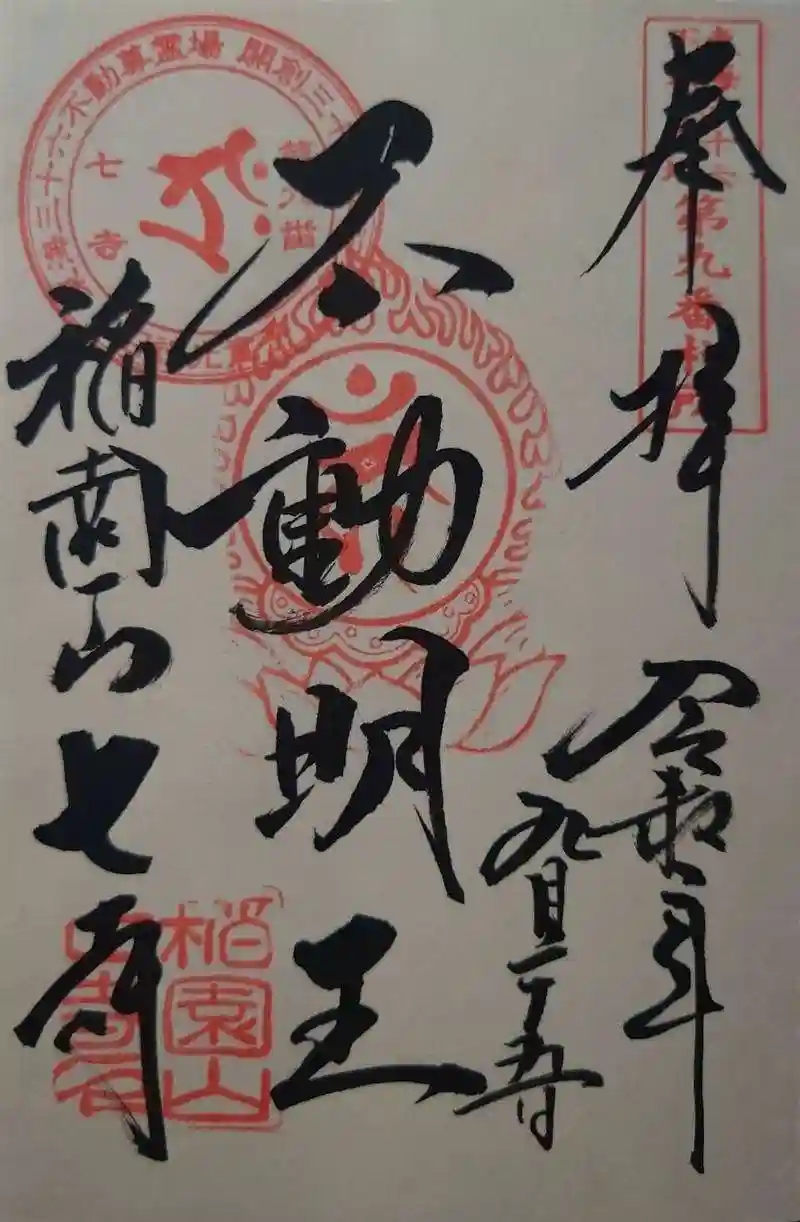 第九番札所
奉拝
令和年
九月二十五日
不動明王
稲園山七寺
三十六不動尊霊場 開創三十
七寺
稲園山